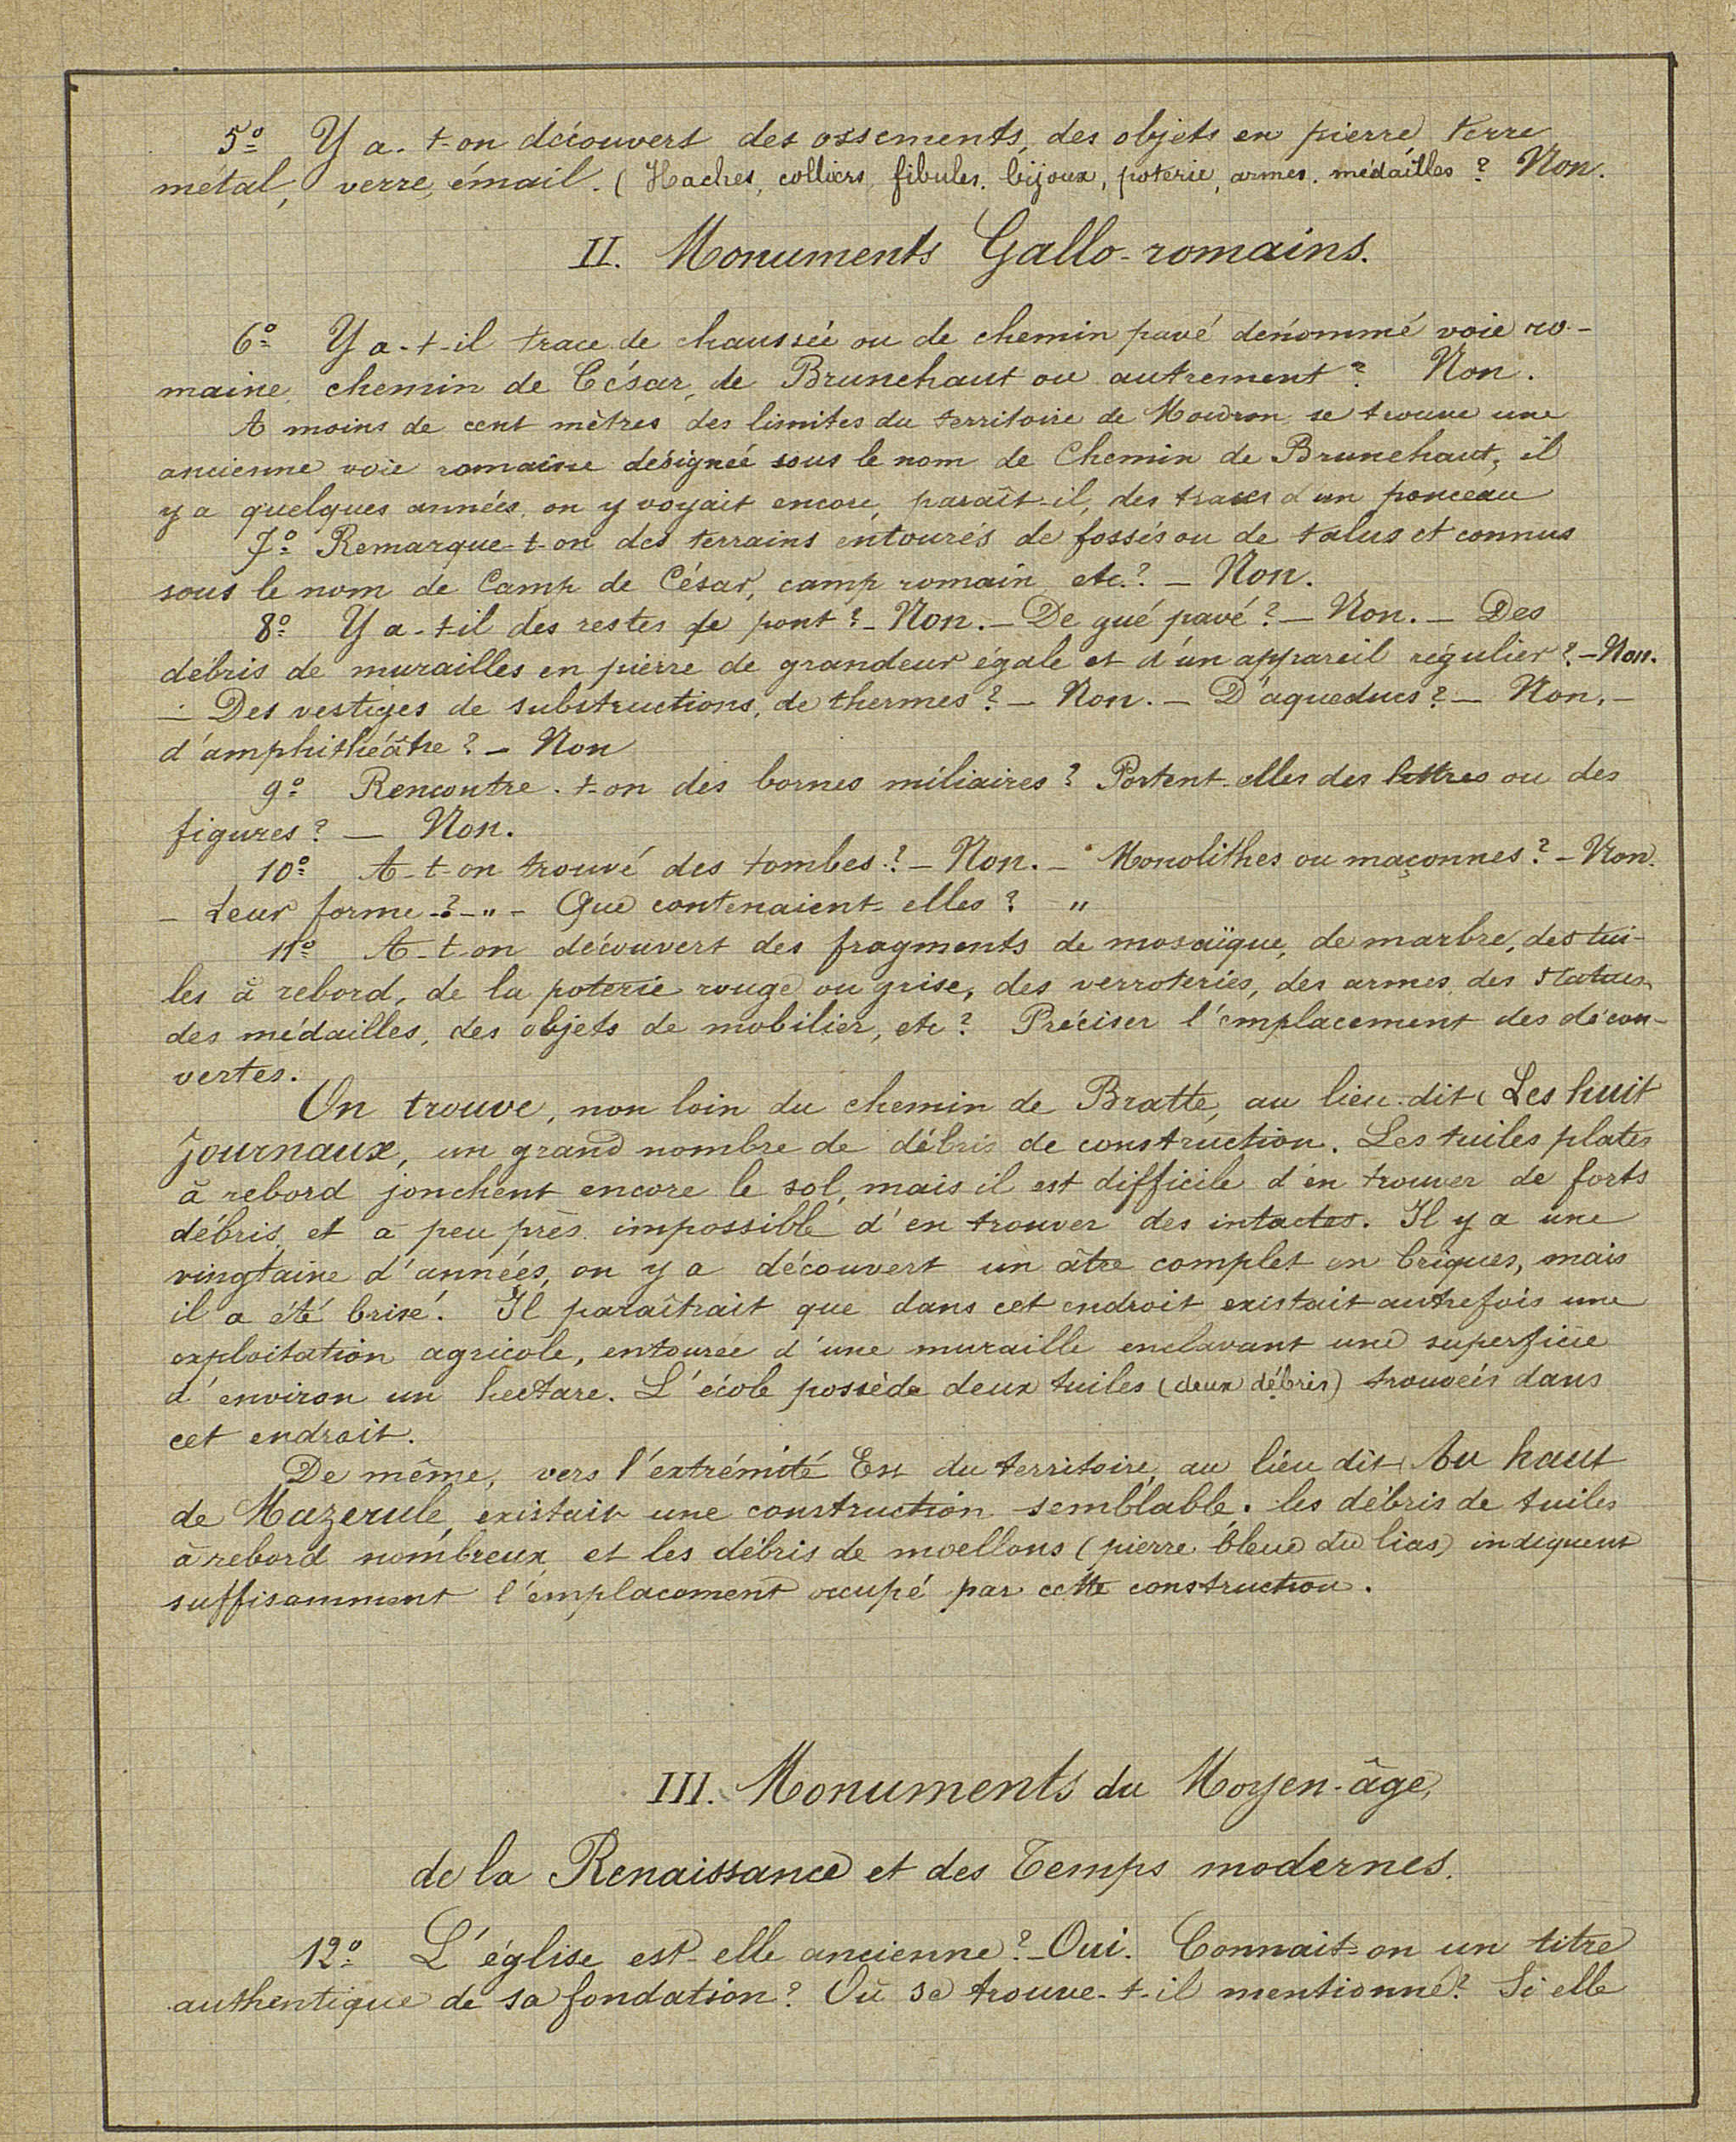 5º Y a-t-on découvert des ossements, des objets en pierre, terre
métal, verre, émail. (Haches, colliers, fibules, bijoux, poterie, armes, médailles ? Non.
II. Monuments Gallo-romains.
6º Y a-t-il trace de chaussée ou de chemin pavé dénommé voie ro-
maine, chemin de César, de Brunehaut ou autrement ? Non.
A moins de cent mètres des limites du territoire de Moivron se trouve une
ancienne voie romaine désignée sous le nom de Chemin de Brunehaut, il
y a quelques années, on y voyait encore, paraît-il, des traces d'un ponceau
7º Remarque-t-on des terrains entourés de fossés ou de talus et connus
sous le nom de Camp de César, camp romain etc.? – Non.
8º Y a-t-il des restes de pont ? – Non. – De gué pavé ? – Non. – Des
débris de murailles en pierre de grandeur égale et d'un appareil régulier ? – Non.
– Des vestiges de substructions, de thermes ? – Non. – D'aqueducs ? – Non. –
d'amphithéâtre ? – Non
9º Rencontre-t-on des bornes miliaires ? Portent-elles des lettres ou des
figures ? – Non.
10º A-t-on trouvé des tombes ? – Non. – Monolithes ou maçonnes ? – Non.
– Leur forme ? – " – Que contenaient-elles ? "
11º A-t-on découvert des fragments de mosaïque, de marbre, des tui-
les à rebord, de la poterie rouge ou grise, des verroteries, des armes, des statues,
des médailles, des objets de mobilier, etc ? Préciser l'emplacement des décou-
vertes.
On trouve, non loin du chemin de Bratte, au lieu-dit Les huit
journaux, un grand nombre de débris de construction. Les tuiles plates
à rebord jonchent encore le sol, mais il est difficile d'en trouver de forts
débris, et à peu près impossible d'en trouver des intactes. Il y a une
vingtaine d'années, on y a découvert un âtre complet en briques, mais
il a été brisé. Il paraîtrait que dans cet endroit existait autrefois une
exploitation agricole, entourée d'une muraille enclavant une superficie
d'environ un hectare. L'école possède deux tuiles (deux débris) trouvées dans
cet endroit.
De même, vers l'extrémité Est du territoire, au lieu dit Au haut
de Mazerule, existait une construction semblable. les débris de tuiles
à rebord nombreux et les débris de moellons (pierre bleue du lias) indiquent
suffisamment l'emplacement occupé par cette construction.
III. Monuments du Moyen-âge,
de la Renaissance et des Temps modernes.
12º L'église est-elle ancienne ? – Oui. Connait-on un titre
authentique de sa fondation ? Où se trouve-t-il mentionné ? Si elle